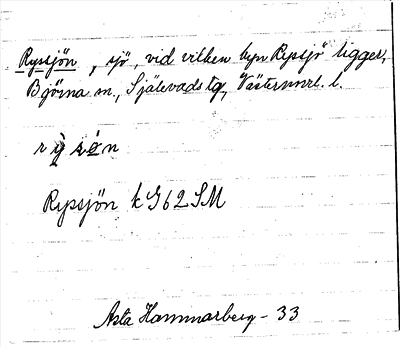 Rypsjön, sjö, vid vilken byn Rypsjö ligger,
Björna sn., Själevads tg, Västernorrl. l.
Rypsjön k G 62 SM
Asta Hammarberg - 33